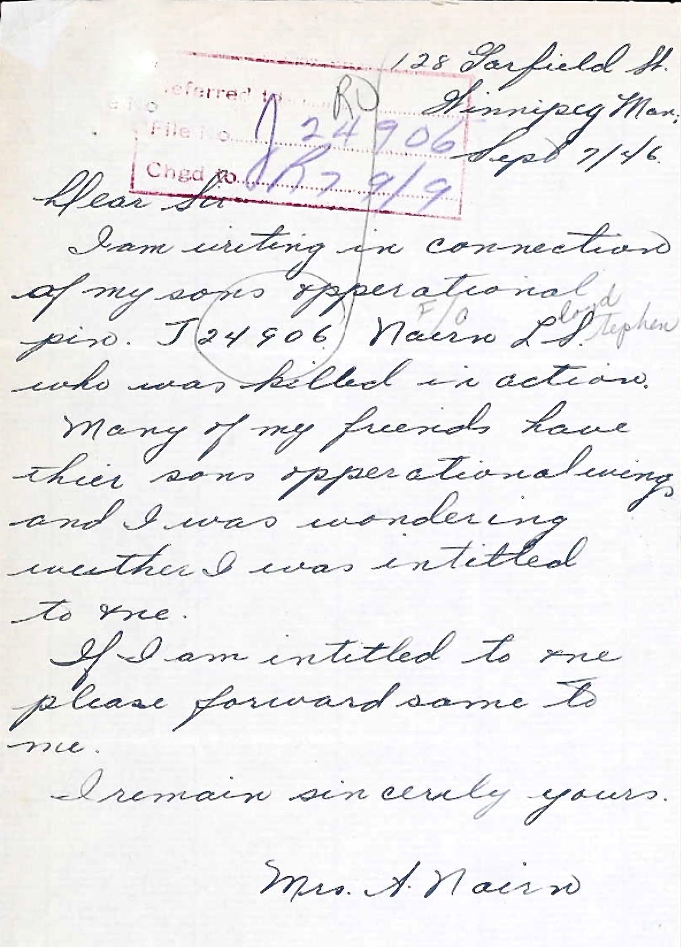 128 Garfield St.
Winnipeg Man.
Sept 7/46.
eferred to RO
e No
File No. J 24906
Chgd to R7 9/9
Dear Sir
I am writing in connection
of my sons opperational
pin. J 24906 F/O Nairn L.S. loyd stephen
who was killed in action.
Many of my friends have
thier sons opperational wings
and I was wondering
weuther I was intitled
to one.
If I am intitled to one
please forward same to
me.
I remain sincerely yours.
Mrs. A. Nairn